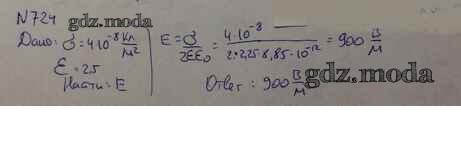 N724
gdz.moda
Дано: σ = 4·10⁻⁸ Кл/м²
ε = 2.5
Найти: E
E = σ/2εε₀ = 4·10⁻⁸/2·2,25·8,85·10⁻¹² = 900 В/м
Ответ: 900 В/м
gdz.moda